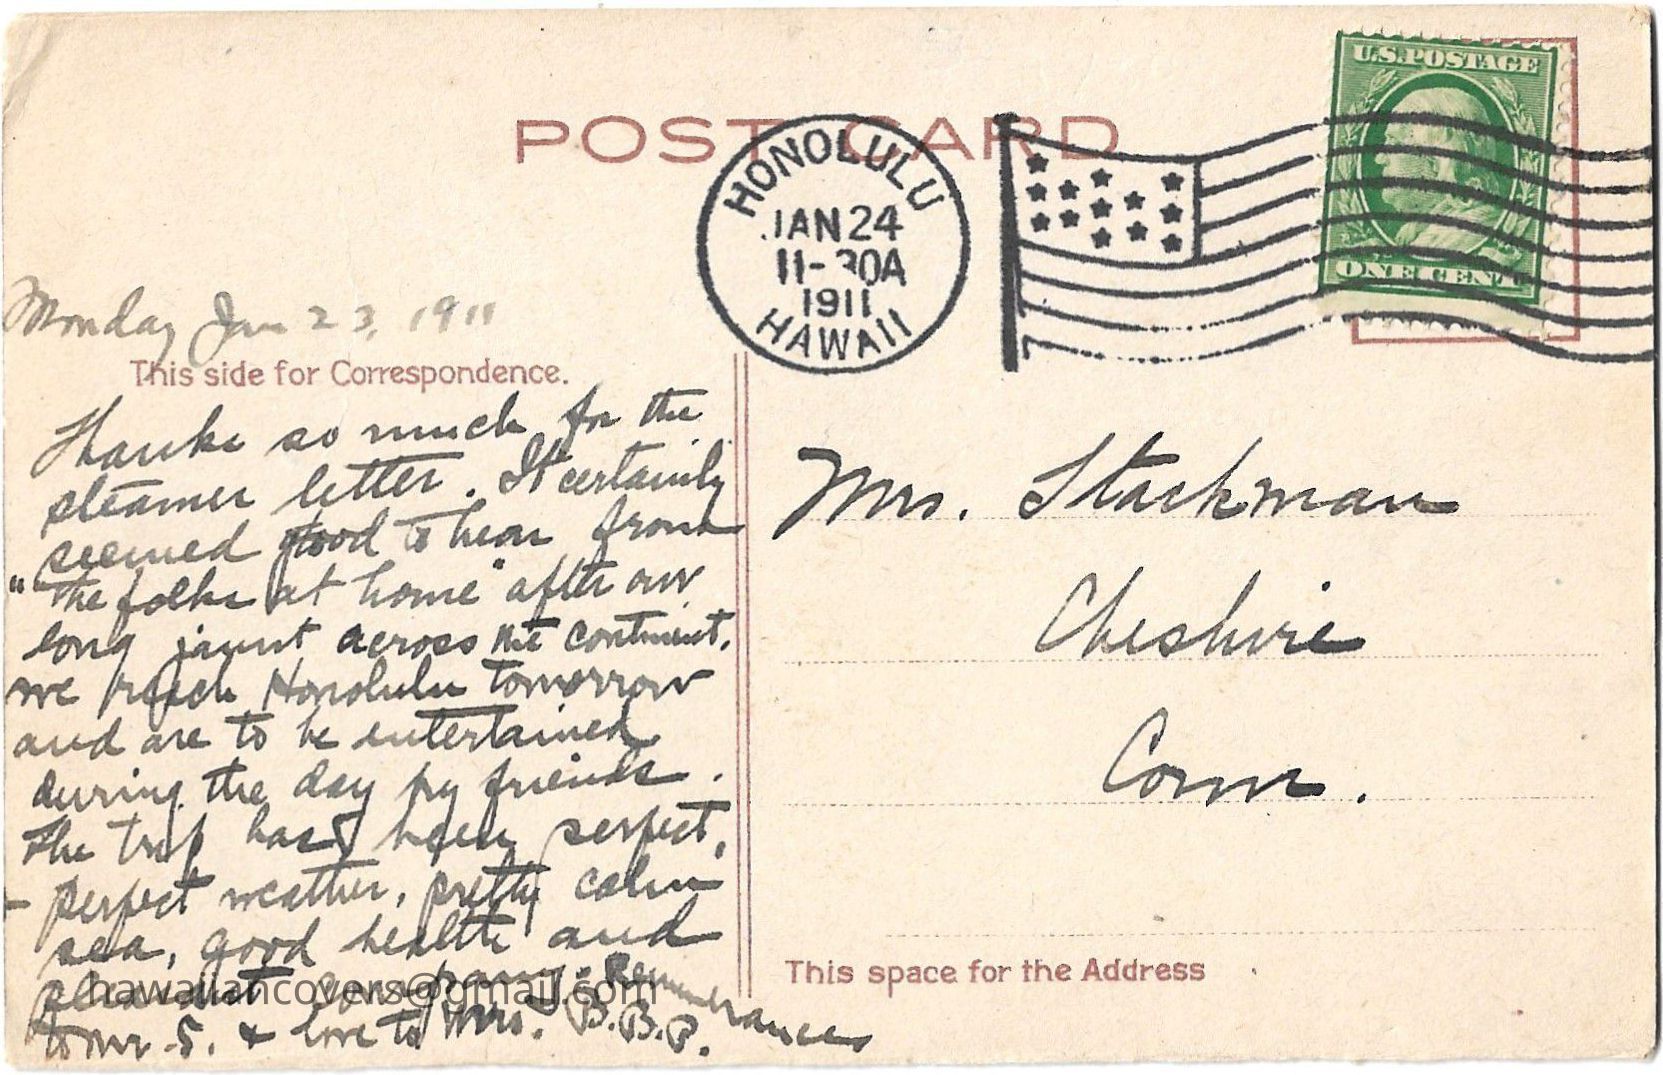 POST CARD
HONOLULU
JAN 24
11-30A
1911
HAWAII
U.S. POSTAGE
ONE CENT
Monday Jan 23, 1911
This side for Correspondence.
Thanks so much for the
steamer letter. It certainly
seemed good to hear from
"the folks at home" after our
long jaunt across the continent.
We reach Honolulu tomorrow
and are to be entertained
during the day by friends.
The trip has been perfect,
- perfect weather, pretty calm
sea, good health and
pleasant company - Rememerances
to Mr. S. + love to Mrs. B.B.P.
Mrs. Stackman
Cheshire
Conn.
This space for the Address
hawaiiancovers@gmail.com